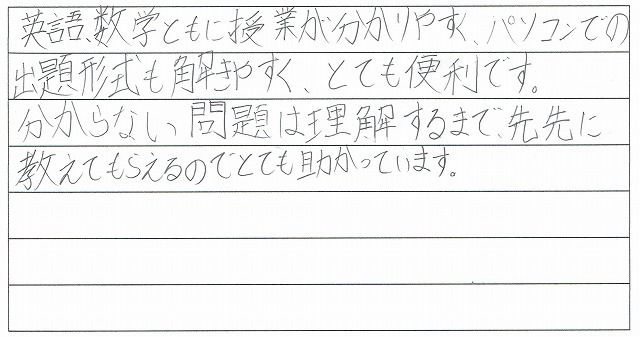 英語、数学ともに授業が分かりやすく、パソコンでの
出題形式も解きやすく、とても便利です。
分からない問題は理解するまで、先先に
教えてもらえるのでとても助かっています。